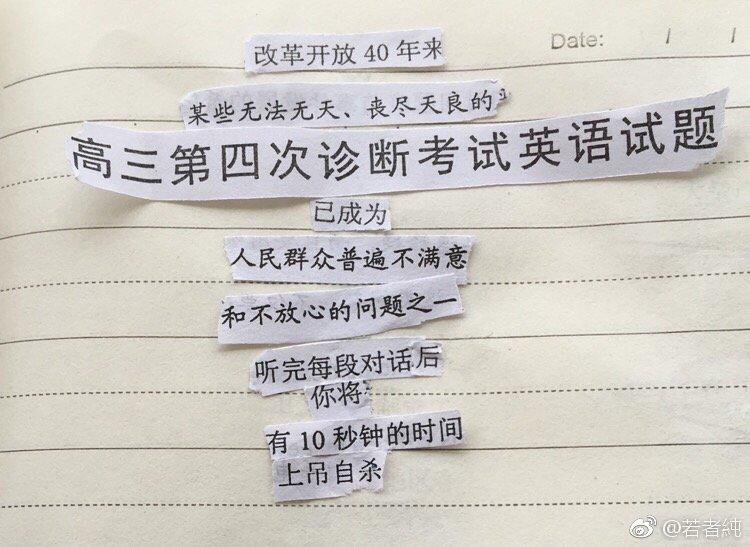 改革开放 40 年来
Date: / /
某些无法无天、丧尽天良的
高三第四次诊断考试英语试题
已成为
人民群众普遍不满意
和不放心的问题之一
听完每段对话后
你将
有 10 秒钟的时间
上吊自杀
@若者純